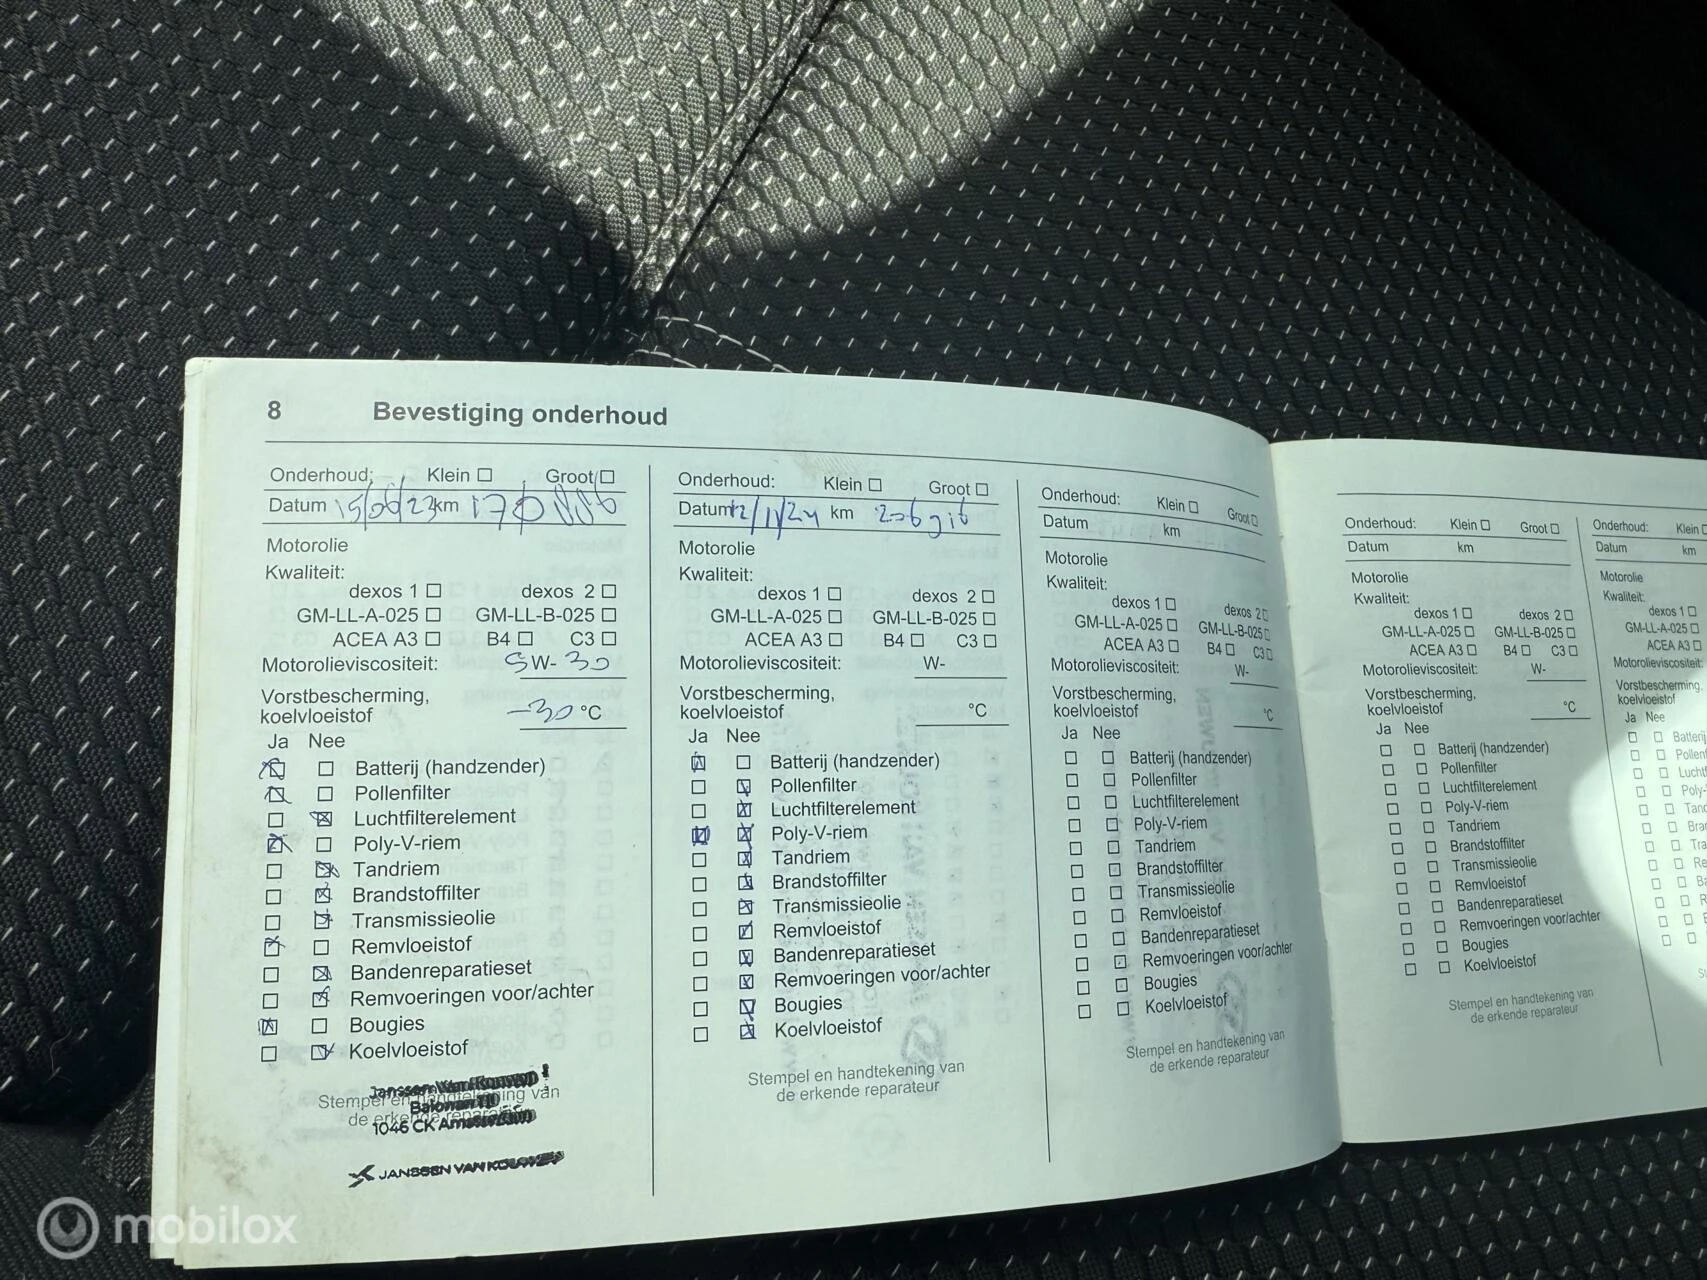 8 Bevestiging onderhoud
Onderhoud: Klein Groot
Datum 15/06/23 km
Motorolie
Kwaliteit:
dexos 1 dexos 2
GM-LL-A-025 GM-LL-B-025
ACEA A3 B4 C3
Motorolieviscositeit: 5W-30
Vorstbescherming,
koelvloeistof -30 °C
Ja Nee
Batterij (handzender)
Pollenfilter
Luchtfilterelement
Poly-V-riem
Tandriem
Brandstoffilter
Transmissieolie
Remvloeistof
Bandenreparatieset
Remvoeringen voor/achter
Bougies
Koelvloeistof
Stempel en handtekening van
de erkende reparateur
1046 CK Amsterdam
JANSSEN VAN KOUWEN
Onderhoud: Klein Groot
Datum 12/11/24 km
Motorolie
Kwaliteit:
dexos 1 dexos 2
GM-LL-A-025 GM-LL-B-025
ACEA A3 B4 C3
Motorolieviscositeit: W-
Vorstbescherming,
koelvloeistof °C
Ja Nee
Batterij (handzender)
Pollenfilter
Luchtfilterelement
Poly-V-riem
Tandriem
Brandstoffilter
Transmissieolie
Remvloeistof
Bandenreparatieset
Remvoeringen voor/achter
Bougies
Koelvloeistof
Stempel en handtekening van
de erkende reparateur
Onderhoud: Klein Groot
Datum km
Motorolie
Kwaliteit:
dexos 1 dexos 2
GM-LL-A-025 GM-LL-B-025
ACEA A3 B4 C3
Motorolieviscositeit: W-
Vorstbescherming,
koelvloeistof °C
Ja Nee
Batterij (handzender)
Pollenfilter
Luchtfilterelement
Poly-V-riem
Tandriem
Brandstoffilter
Transmissieolie
Remvloeistof
Bandenreparatieset
Remvoeringen voor/achter
Bougies
Koelvloeistof
Stempel en handtekening van
de erkende reparateur
Onderhoud: Klein Groot
Datum km
Motorolie
Kwaliteit:
dexos 1 dexos 2
GM-LL-A-025 GM-LL-B-025
ACEA A3 B4 C3
Motorolieviscositeit: W-
Vorstbescherming,
koelvloeistof °C
Ja Nee
Batterij (handzender)
Pollenfilter
Luchtfilterelement
Poly-V-riem
Tandriem
Brandstoffilter
Transmissieolie
Remvloeistof
Bandenreparatieset
Remvoeringen voor/achter
Bougies
Koelvloeistof
Stempel en handtekening van
de erkende reparateur
Onderhoud: Klein
Datum km
Motorolie
Kwaliteit:
dexos 1
GM-LL-A-025
ACEA A3
Motorolieviscositeit:
Vorstbescherming,
koelvloeistof
Ja Nee
mobilox